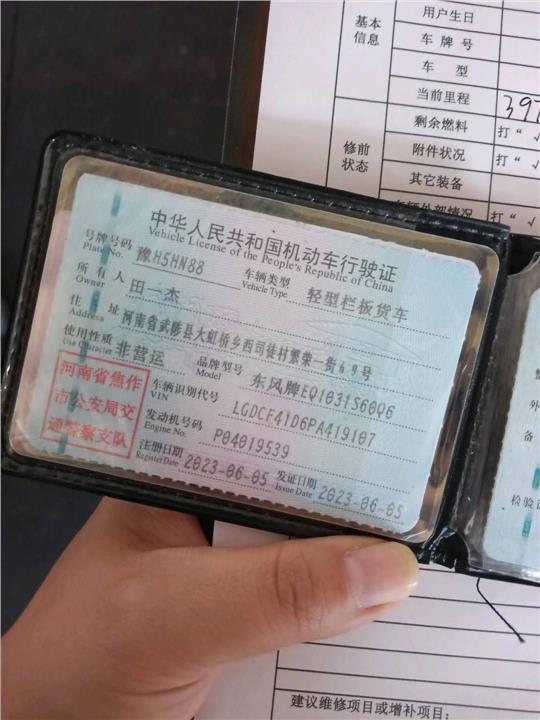 基本
信息
用户生日
车 牌 号
车 型
当前里程
397
修前
状态
剩余燃料
打“ √
附件状况
打“ √
其它装备
车辆外部情况
打“ √
中华人民共和国机动车行驶证
Vehicle License of the People's Republic of China
号牌号码
Plate No.
豫H5HN88
车辆类型
Vehicle Type
轻型栏板货车
所 有 人
Owner
田一杰
住 址
Address
河南省武陟县大虹桥乡西司徒村繁荣一街69号
使用性质
Use Character
非营运
品牌型号
Model
东风牌EQ1031S60Q6
河南省焦作
市公安局交
通警察支队
车辆识别代号
VIN
LGDCF41D6PA419107
发动机号码
Engine No.
P04019539
注册日期
Register Date
2023-06-05
发证日期
Issue Date
2023-06-05
整
外
备
检验记
建议维修项目或增补项目: